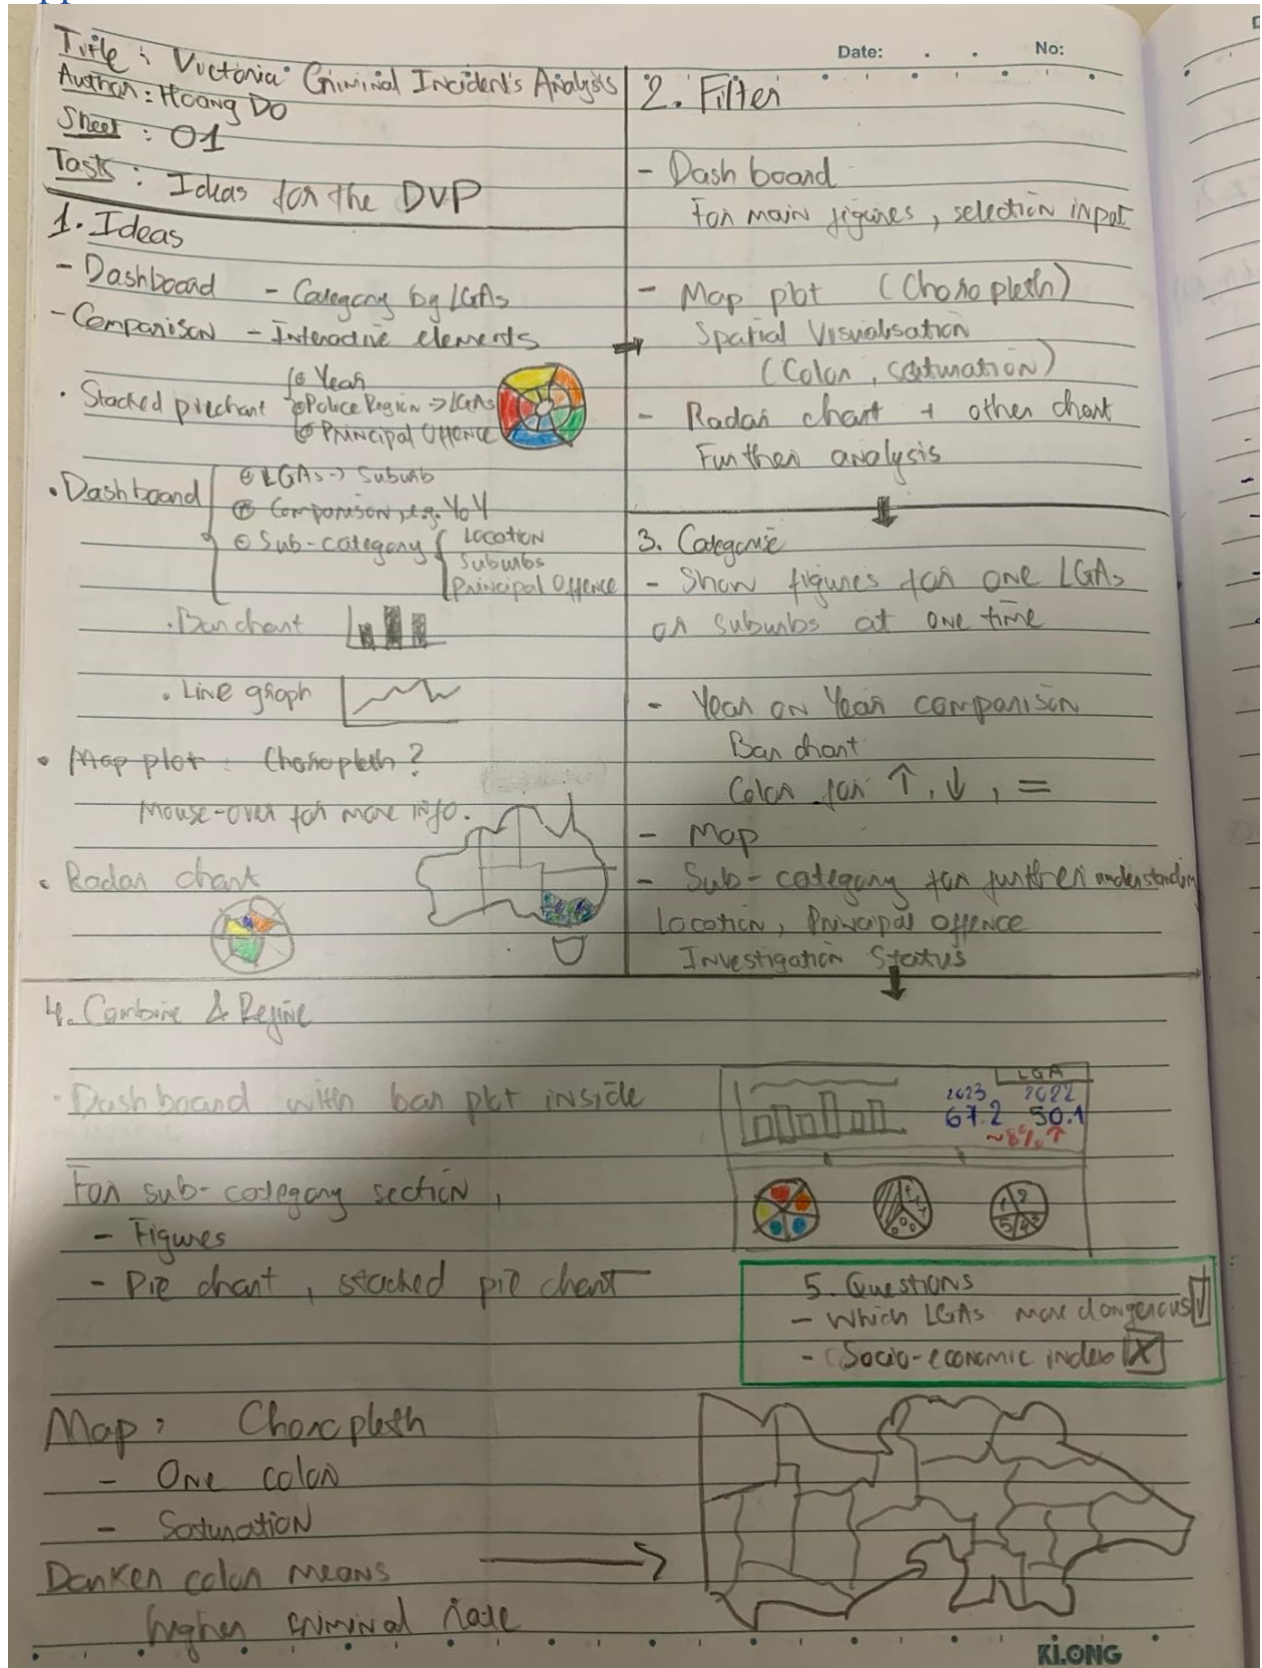 Title : Victoria Criminal Incidents Analysis
Author : Hoang Do
Sheet : 01
Task : Ideas for the DVP
1. Ideas
- Dashboard - Category by LGAs
- Comparison - Interactive elements
• Stacked piechart Year
Police Region -> LGAs
Principal Offence
• Dashboard LGAs -> Suburb
Comparison, e.g. YoY
Sub-category Location
Suburbs
Principal Offence
• Bar chart
• Line graph
• Map plot : Choropleth ?
Mouse-over for more info.
• Radar chart
Date: No:
2. Filter
- Dashboard
For main figures, selection input
- Map plot (Choropleth)
Spatial Visualisation
(Color, saturation)
- Radar chart + other chart
Further analysis
3. Categorie
- Show figures for one LGAs
or suburbs at one time
- Year on Year comparison
Bar chart
Color for ↑, ↓, =
- Map
- Sub-category for further understanding
location, Principal offence
Investigation Status
4. Combine & Refine
• Dashboard with bar plot inside
For sub-category section,
- Figures
- Pie chart, stacked pie chart
LGA
2023 2022
67.2 50.1
~8% ↑
1 2
5 4 3
5. Questions
- Which LGAs more dangerous
- Socio-economic index
Map: Choropleth
- One color
- Saturation
Darker color means
higher criminal rate
KLONG